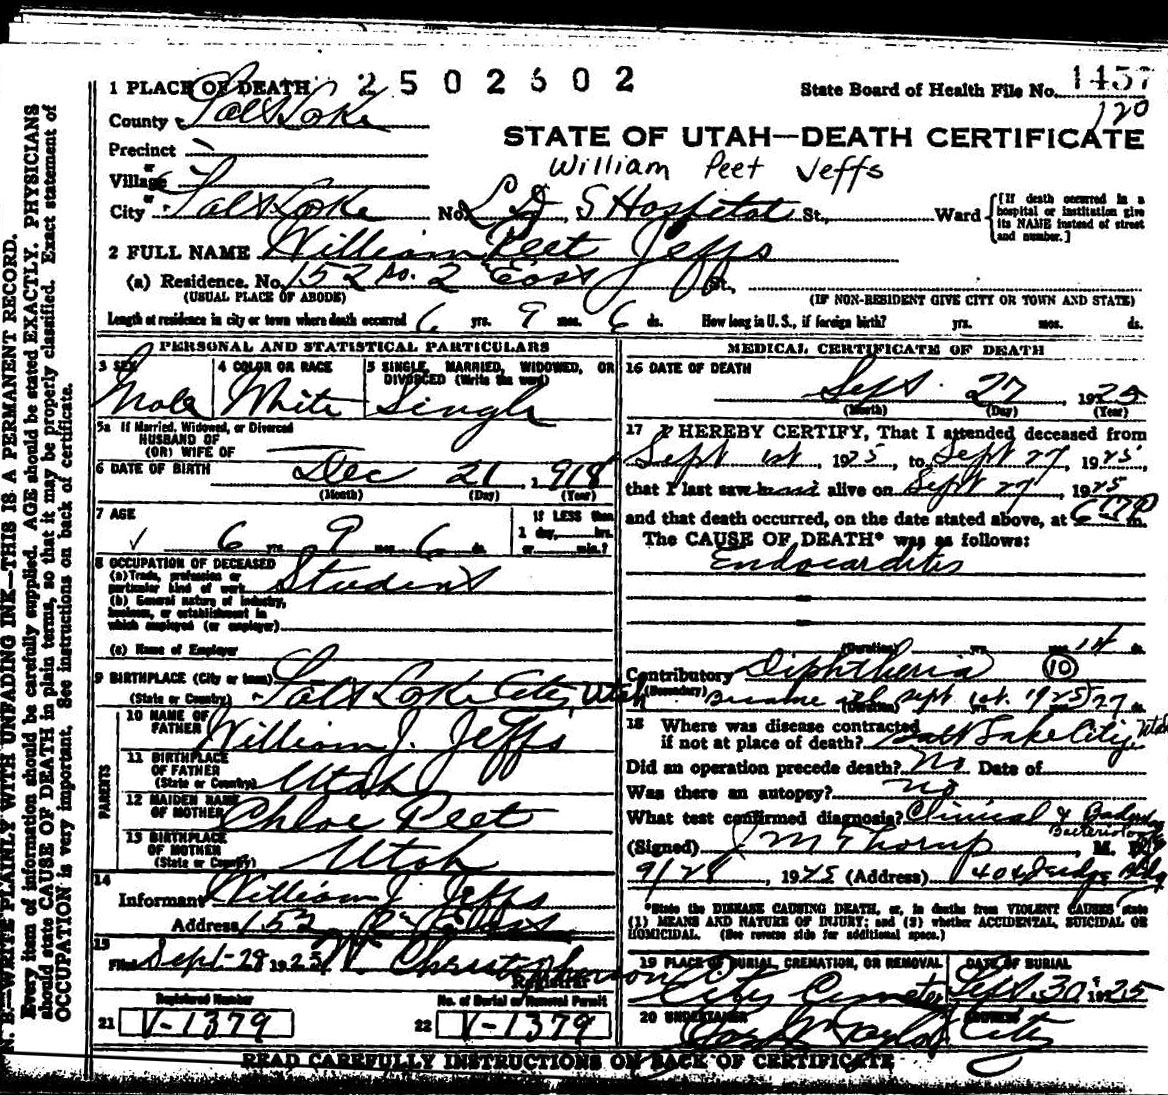 1 PLACE OF DEATH 2502602
State Board of Health File No. 1457
120
County Salt Lake
STATE OF UTAH—DEATH CERTIFICATE
Precinct
William Peet Jeffs
or
Village
or
City Salt Lake No. L D S Hospital St., Ward
[If death occurred in a hospital or institution give its NAME instead of street and number.]
2 FULL NAME William Peet Jeffs
(a) Residence. No. 152 So. 2 East St.
(USUAL PLACE OF ABODE) (IF NON-RESIDENT GIVE CITY OR TOWN AND STATE)
Length of residence in city or town where death occurred 6 yrs. 9 mos. 6 ds. How long in U. S., if foreign birth? yrs. mos. ds.
PERSONAL AND STATISTICAL PARTICULARS
3 SEX 4 COLOR OR RACE 5 SINGLE, MARRIED, WIDOWED, OR DIVORCED (Write the word)
Male White Single
5a If Married, Widowed, or Divorced
HUSBAND OF
(OR) WIFE OF
6 DATE OF BIRTH Dec 21, 1918
(Month) (Day) (Year)
7 AGE If LESS than
6 yrs. 9 mos. 6 ds. 1 day, hrs.
or min.?
8 OCCUPATION OF DECEASED
(a) Trade, profession or
particular kind of work Student
(b) General nature of industry,
business, or establishment in
which employed (or employer)
(c) Name of Employer
9 BIRTHPLACE (City or town)
(State or Country) Salt Lake City, Utah
PARENTS
10 NAME OF
FATHER William J. Jeffs
11 BIRTHPLACE
OF FATHER
(State or Country) Utah
12 MAIDEN NAME
OF MOTHER Chloe Peet
13 BIRTHPLACE
OF MOTHER
(State or Country) Utah
14
Informant William J. Jeffs
Address 152
15
Filed Sept-28 1925 W. Christopherson
Registrar
Registered Number No. of Burial or Removal Permit
21 V-1379 22 V-1379
MEDICAL CERTIFICATE OF DEATH
16 DATE OF DEATH
Sept. 27, 1925
(Month) (Day) (Year)
17 I HEREBY CERTIFY, That I attended deceased from
Sept 1st, 1925, to Sept 27, 1925,
that I last saw him alive on Sept 27, 1925
and that death occurred, on the date stated above, at m.
The CAUSE OF DEATH* was as follows:
Endocarditis
(Duration) yrs. mos. 14 ds.
Contributory Diphtheria (10)
(Secondary) Became ill Sept 1st. 1925 27
(Duration)
18 Where was disease contracted
if not at place of death? Salt Lake City Utah
Did an operation precede death? No Date of
Was there an autopsy? no
What test confirmed diagnosis? Clinical &
(Signed) J M Thorup, M. D.
9/28, 1925 (Address) 404 Judge Bldg
*State the DISEASE CAUSING DEATH, or, in deaths from VIOLENT CAUSES state
(1) MEANS AND NATURE OF INJURY; and (2) whether ACCIDENTAL, SUICIDAL OR
HOMICIDAL. (See reverse side for additional space.)
19 PLACE OF BURIAL, CREMATION, OR REMOVAL DATE OF BURIAL
City Cemetery Sept. 30 1925
20 UNDERTAKER ADDRESS
Taylor City
READ CAREFULLY INSTRUCTIONS ON BACK OF CERTIFICATE
N. B.—WRITE PLAINLY WITH UNFADING INK—THIS IS A PERMANENT RECORD.
Every item of information should be carefully supplied. AGE should be stated EXACTLY. PHYSICIANS
should state CAUSE OF DEATH in plain terms, so that it may be properly classified. Exact statement of
OCCUPATION is very important. See instructions on back of certificate.